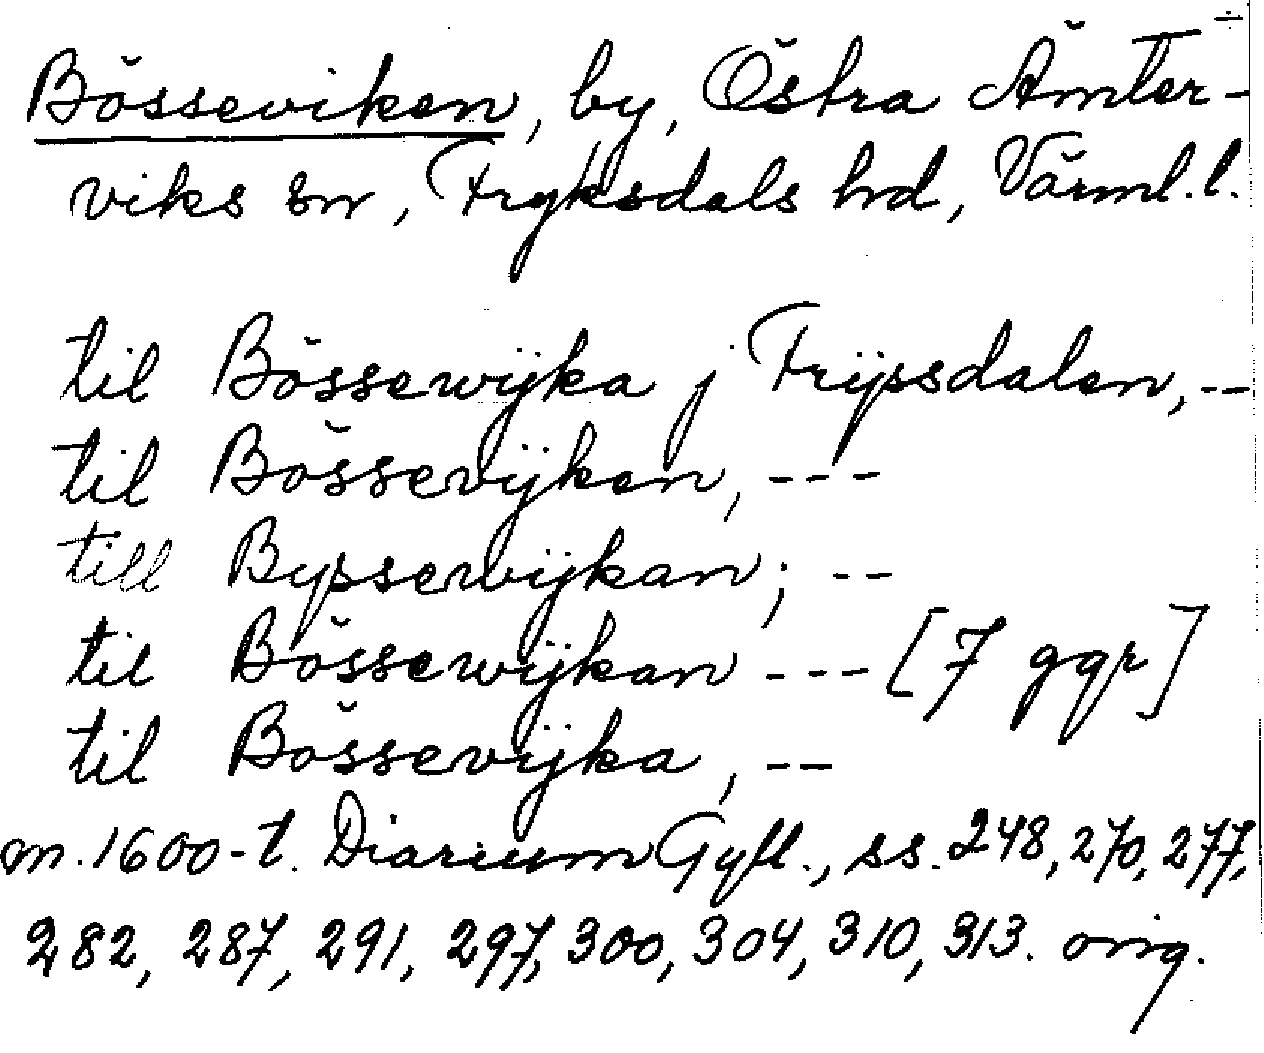 Bösseviken, by, Östra Ämter-
viks sn, Fryksdals hd, Värml. l.
til Bössewijka j Frijssdalen, --
til Bössevijken, ---
till Byssewijkan; --
til Bössewijkan --- [7 ggr]
til Bössevijka, --
m. 1600-t. Diarium Gyll., ss. 248, 270, 277,
282, 287, 291, 297, 300, 304, 310, 313. orig.